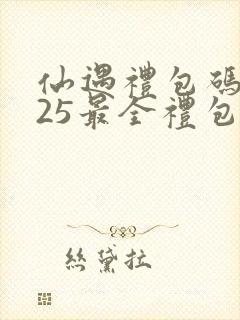 仙遇禮包碼
25最全禮包
絲黛拉